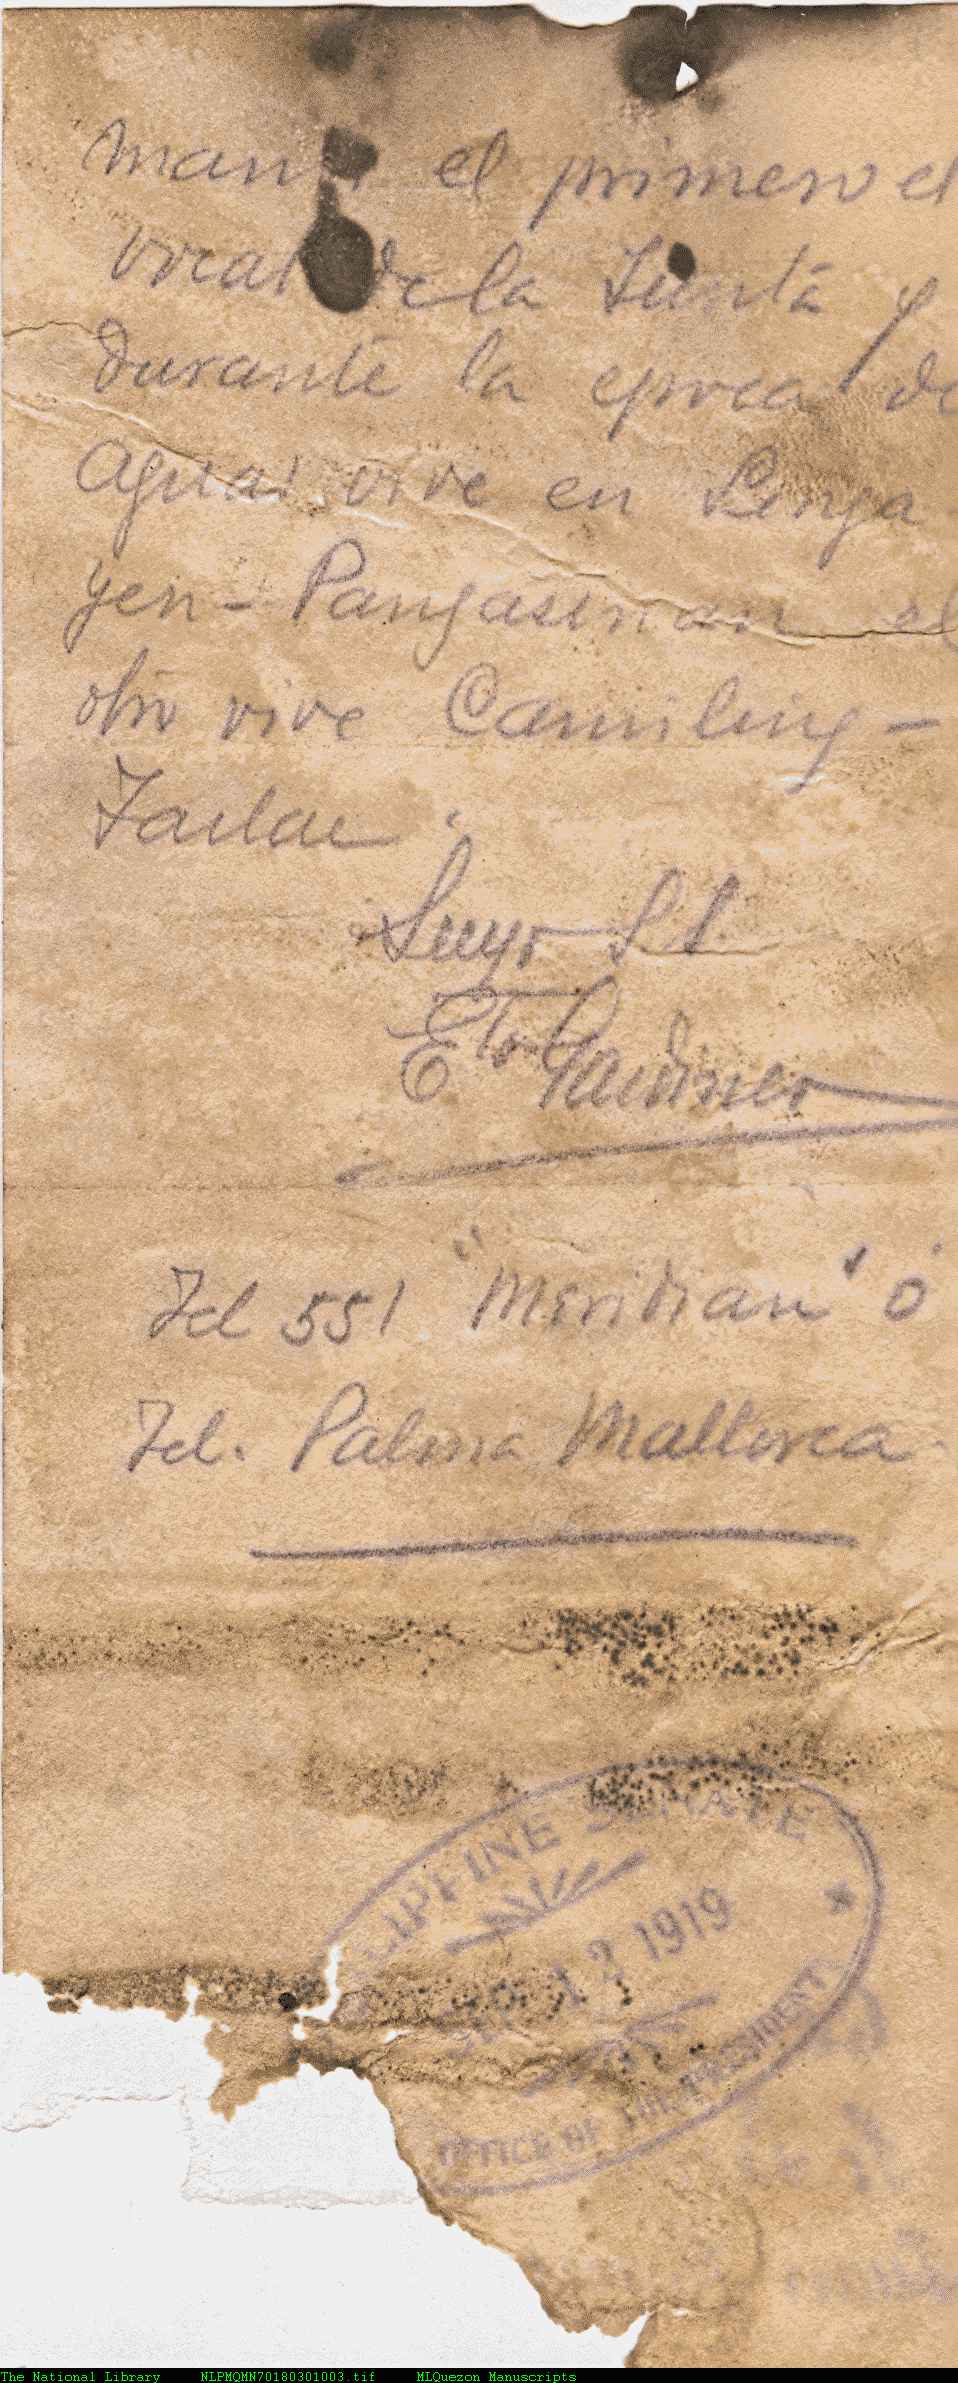 el primero el
vocal de la Junta y
durante la epoca de
aguas vive en Linga
yen - Pangasinan el
otro vive Camiling -
Tarlac.
Suyo S S
Eto Gardiner
Tel 551 "Meridian" ó
Tel. Palma Mallorca
LIPPINE SENATE
1919
OFFICE OF THE PRESIDENT
The National Library NLPMQMN70180301003.tif MLQuezon Manuscripts